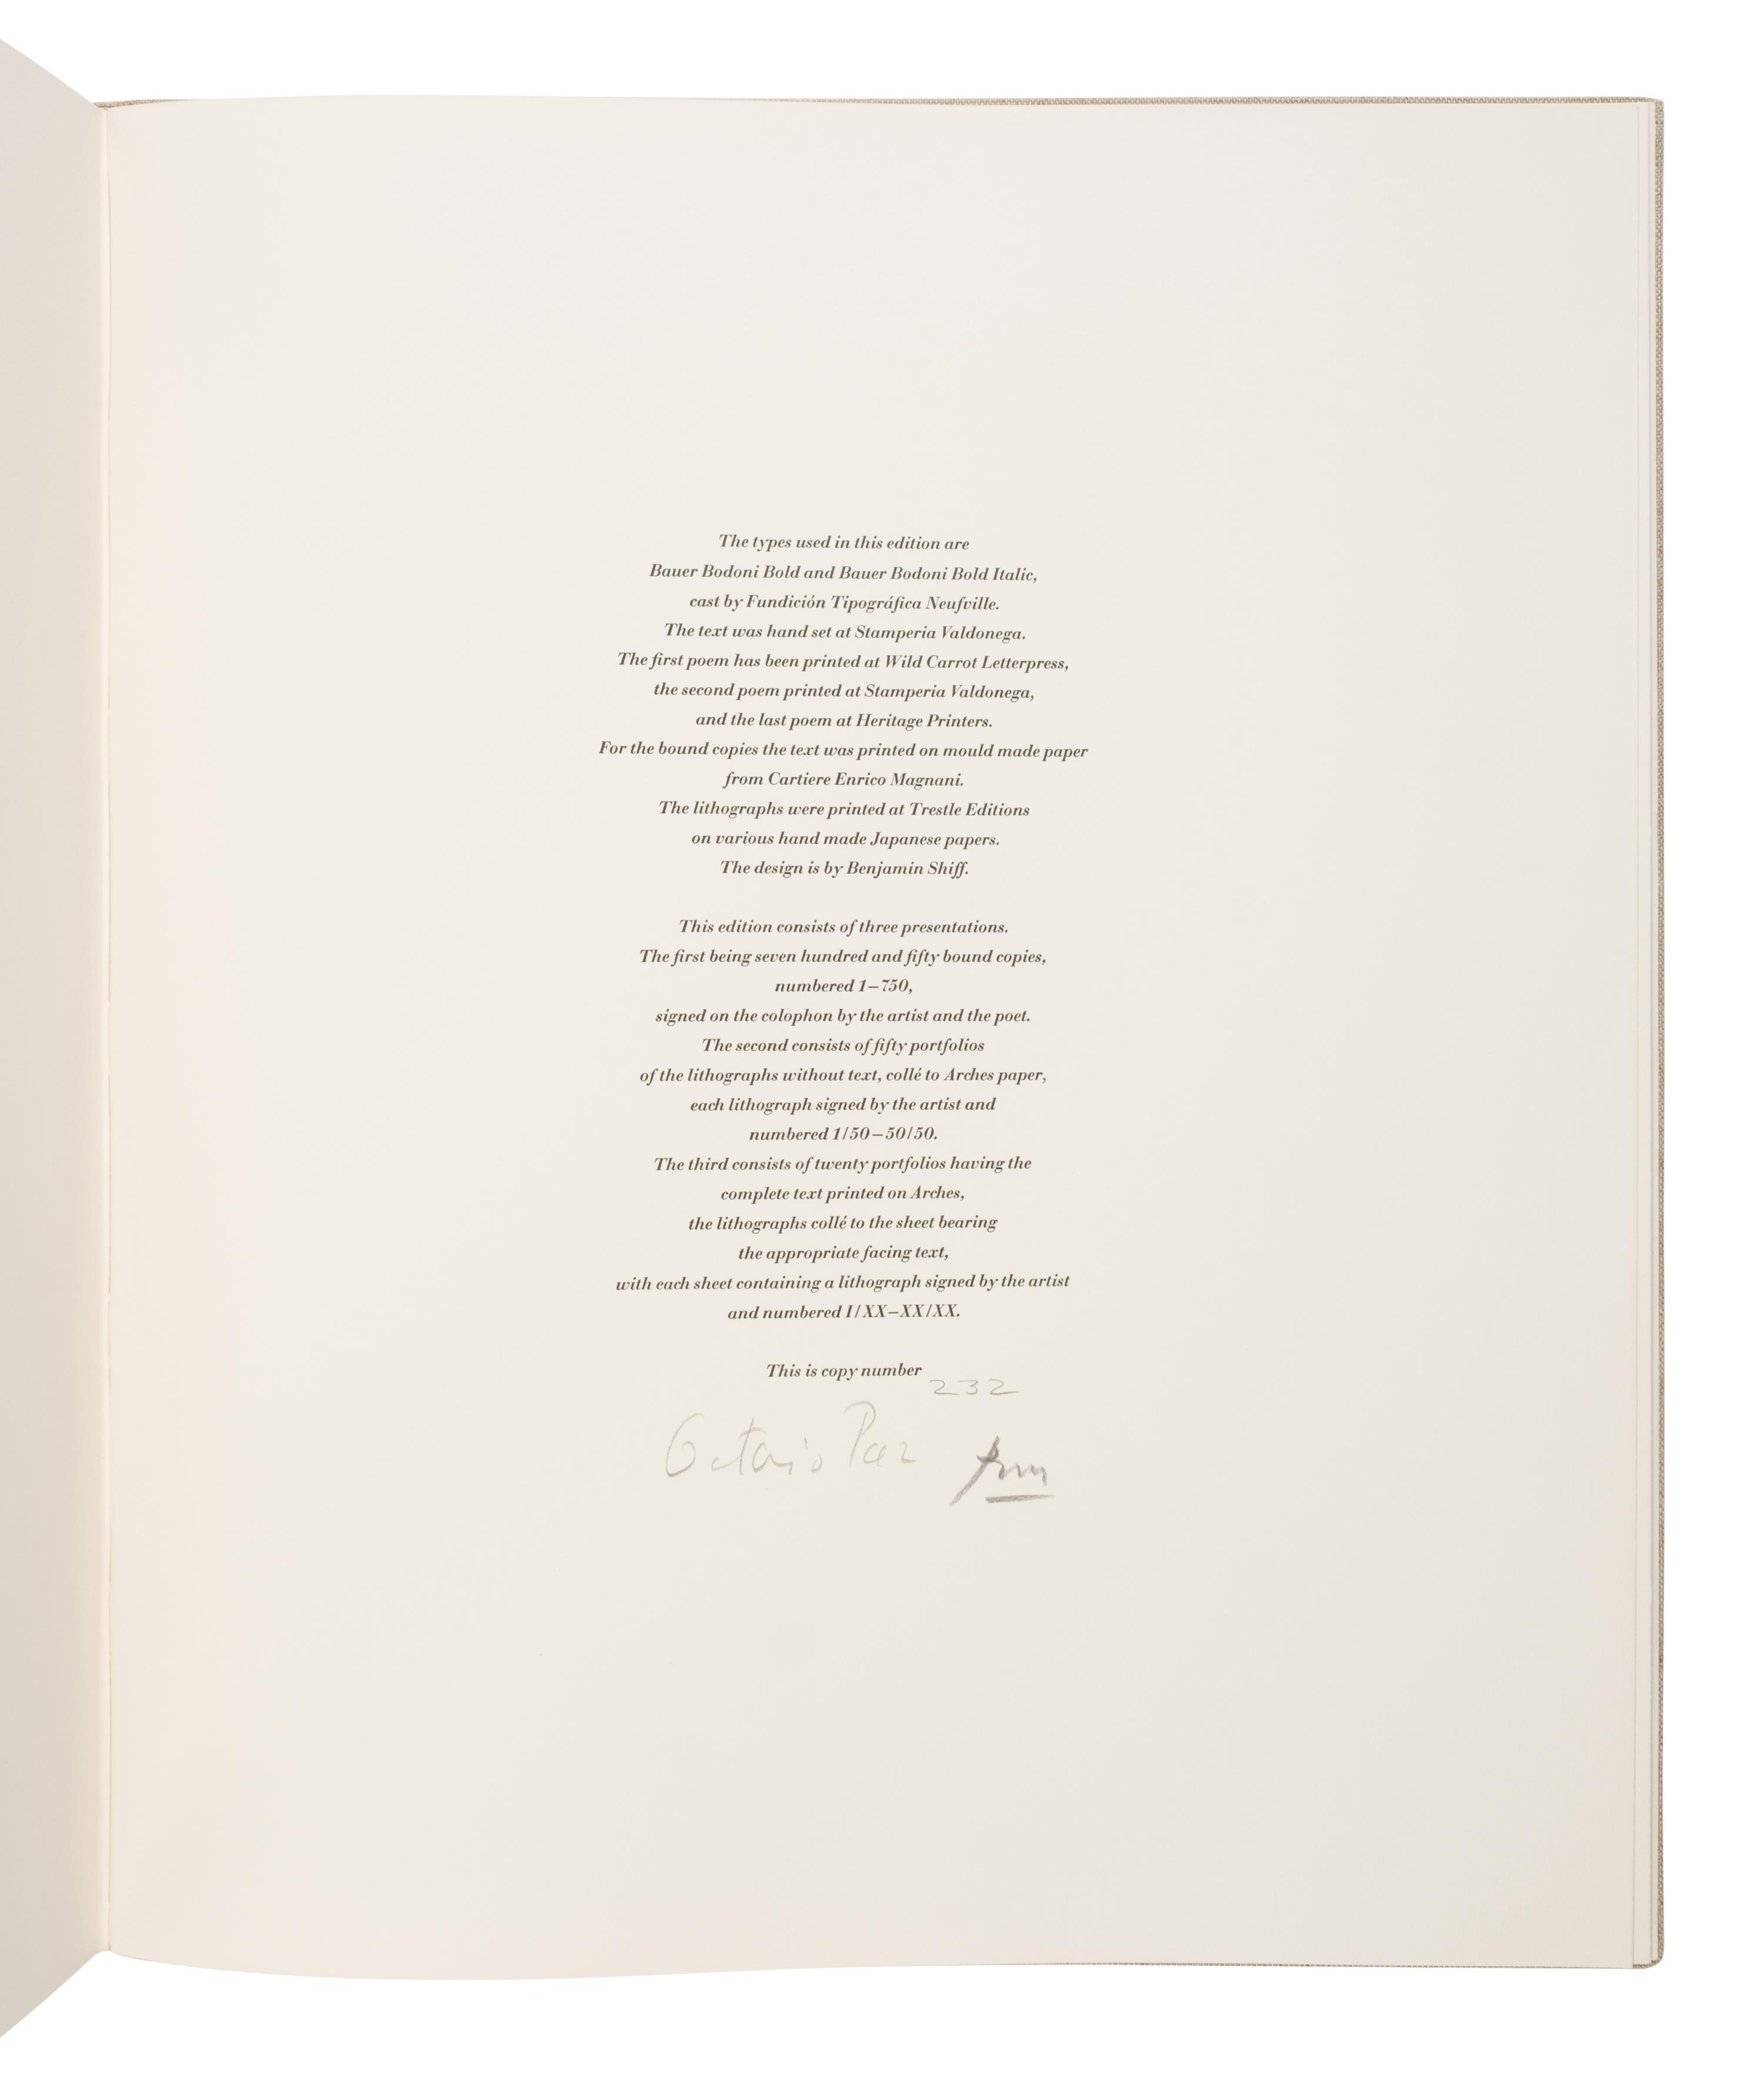 The types used in this edition are
Bauer Bodoni Bold and Bauer Bodoni Bold Italic,
cast by Fundición Tipográfica Neufville.
The text was hand set at Stamperia Valdonega.
The first poem has been printed at Wild Carrot Letterpress,
the second poem printed at Stamperia Valdonega,
and the last poem at Heritage Printers.
For the bound copies the text was printed on mould made paper
from Cartiere Enrico Magnani.
The lithographs were printed at Trestle Editions
on various hand made Japanese papers.
The design is by Benjamin Shiff.
This edition consists of three presentations.
The first being seven hundred and fifty bound copies,
numbered 1–750,
signed on the colophon by the artist and the poet.
The second consists of fifty portfolios
of the lithographs without text, collé to Arches paper,
each lithograph signed by the artist and
numbered 1/50–50/50.
The third consists of twenty portfolios having the
complete text printed on Arches,
the lithographs collé to the sheet bearing
the appropriate facing text,
with each sheet containing a lithograph signed by the artist
and numbered I/XX–XX/XX.
This is copy number 232
Octavio Paz